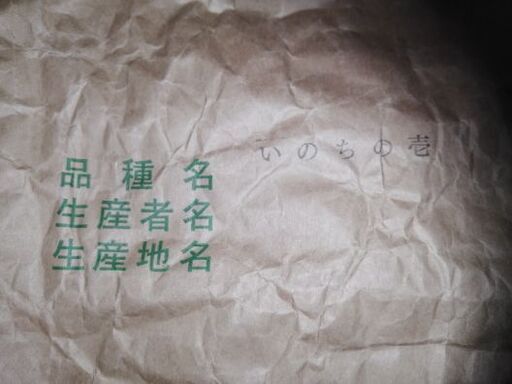 品種名 いのちの壱
生産者名
生産地名